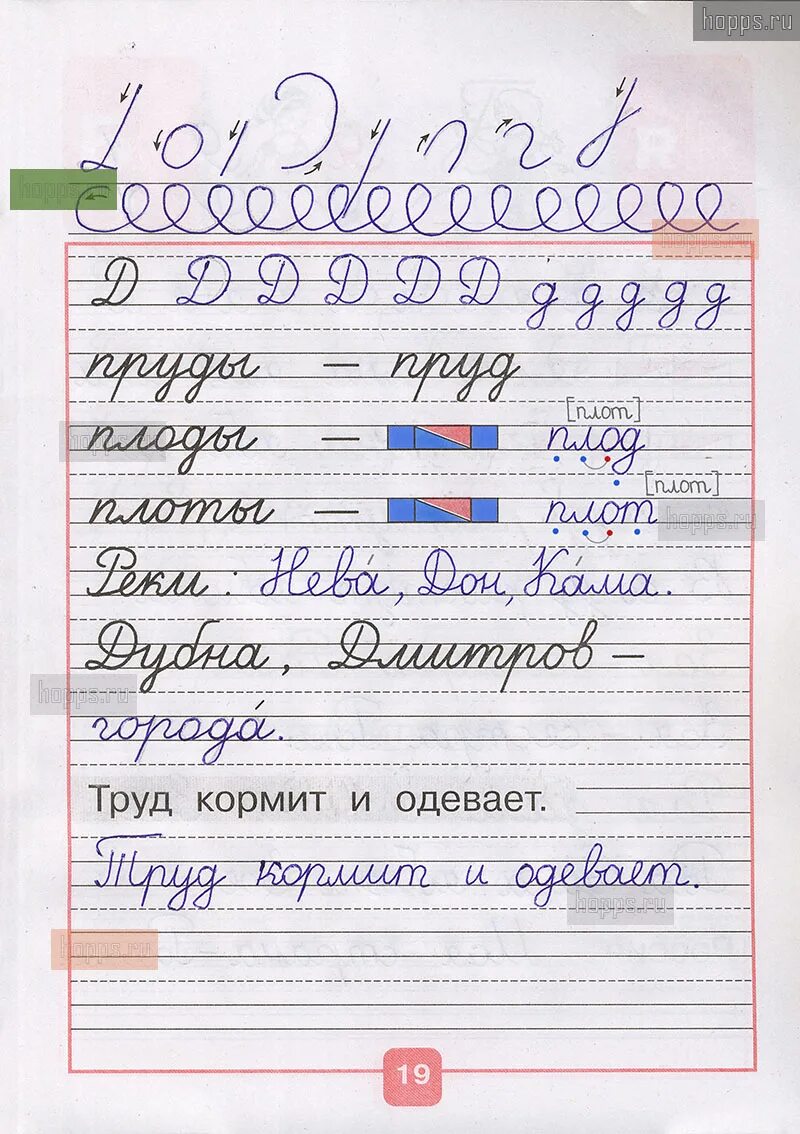 hopps.ru
hopps.ru
hopps.ru
Д Д Д Д Д Д д д д д д
пруды — пруд
[плот]
плоды — плод
hopps.ru
[плот]
плоты — плот
hopps.ru
Реки: Нева́, Дон, Ка́ма.
Дубна, Дмитров —
hopps.ru
города́.
Труд кормит и одевает.
Труд кормит и одевает.
hopps.ru
hopps.ru
19